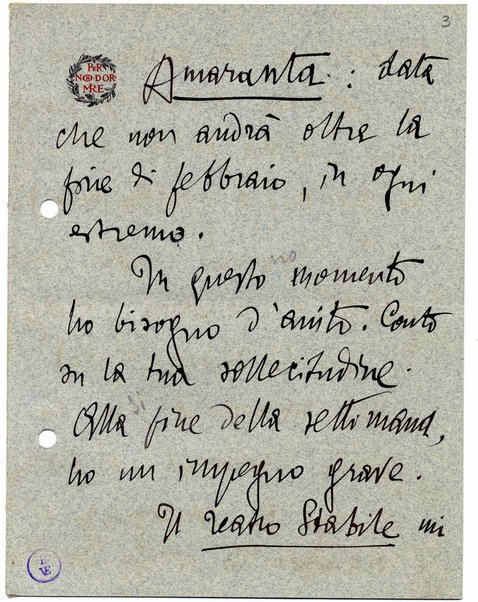 3
PER
NON DOR
MIRE
Amaranta : data
che non andrà oltre la
fine di febbraio, in ogni
estremo.
In questo momento
ho bisogno d'aiuto. Conto
su la tua sollecitudine.
Alla fine della settimana,
ho un impegno grave.
Il Teatro Stabile mi